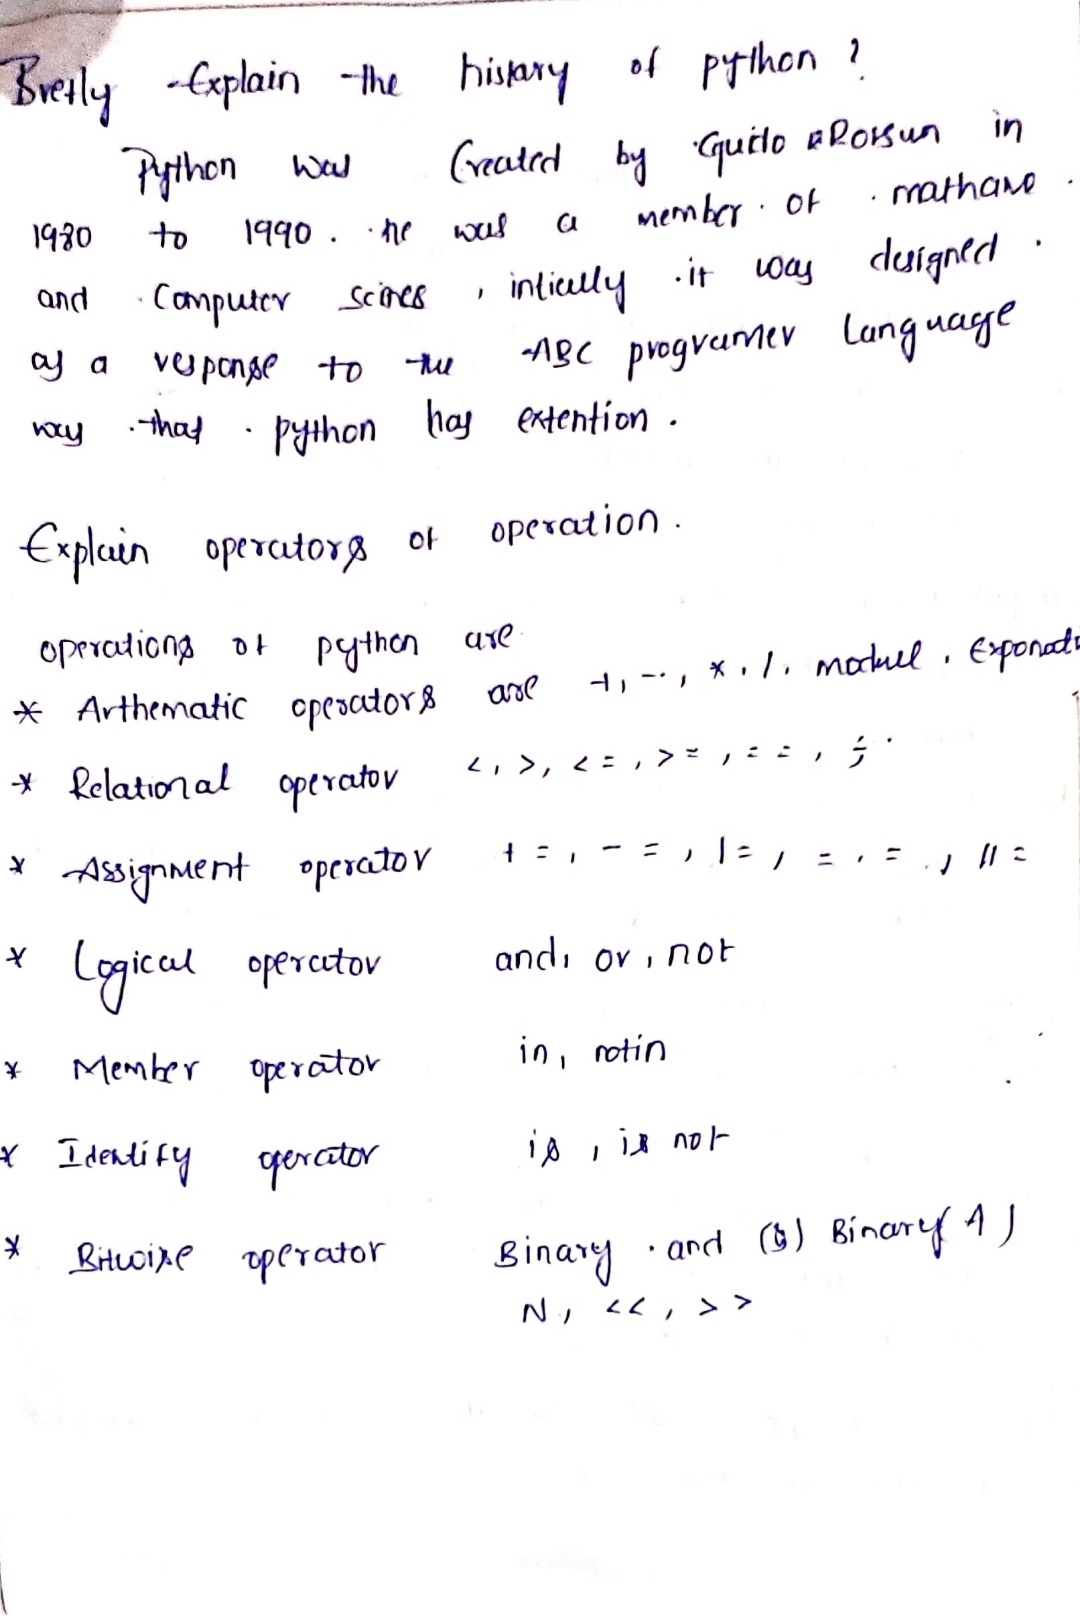 Breifly Explain the histary of python ?
Python was Created by Guido Rossun in
1980 to 1990 . he was a member of mathane
and Computer scines , intically it was designed
as a response to the ABC programer Language
way that python has extention .
Explain operators of operation .
operations of python are
* Arthematic operators are +, -, *, /, moduel , Exponoti
* Relational operator <, >, <=, >=, ==,
* Assignment operator +=, -=, /=, =, =, //=
* Logical operator and, or, not
* Member operator in, notin
* Identify operator is , is not
* Bitwise operator Binary and (&) Binary
N, <<, >>